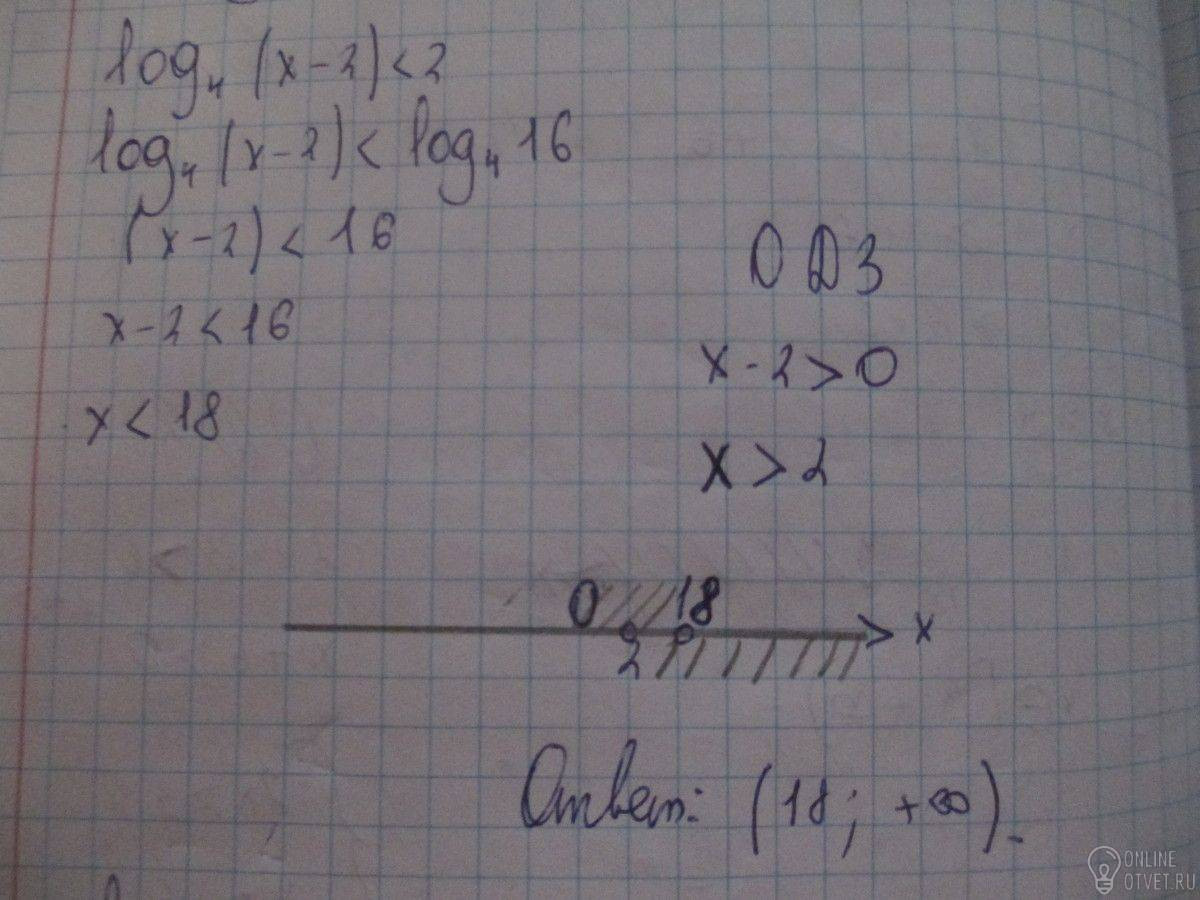 log₄ (x-2) < 2
log₄ (x-2) < log₄ 16
(x-2) < 16
x-2 < 16
x < 18
ОДЗ
x-2 > 0
x > 2
0 18
2
x
Ответ: (18; +∞).
ONLINE
OTVET.RU